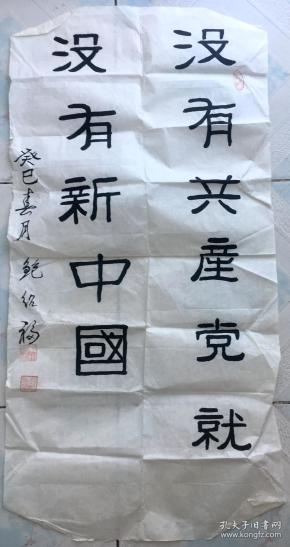 没有共產党就
没有新中國
癸巳春月 鲍绍福
孔夫子旧书网
www.kongfz.com